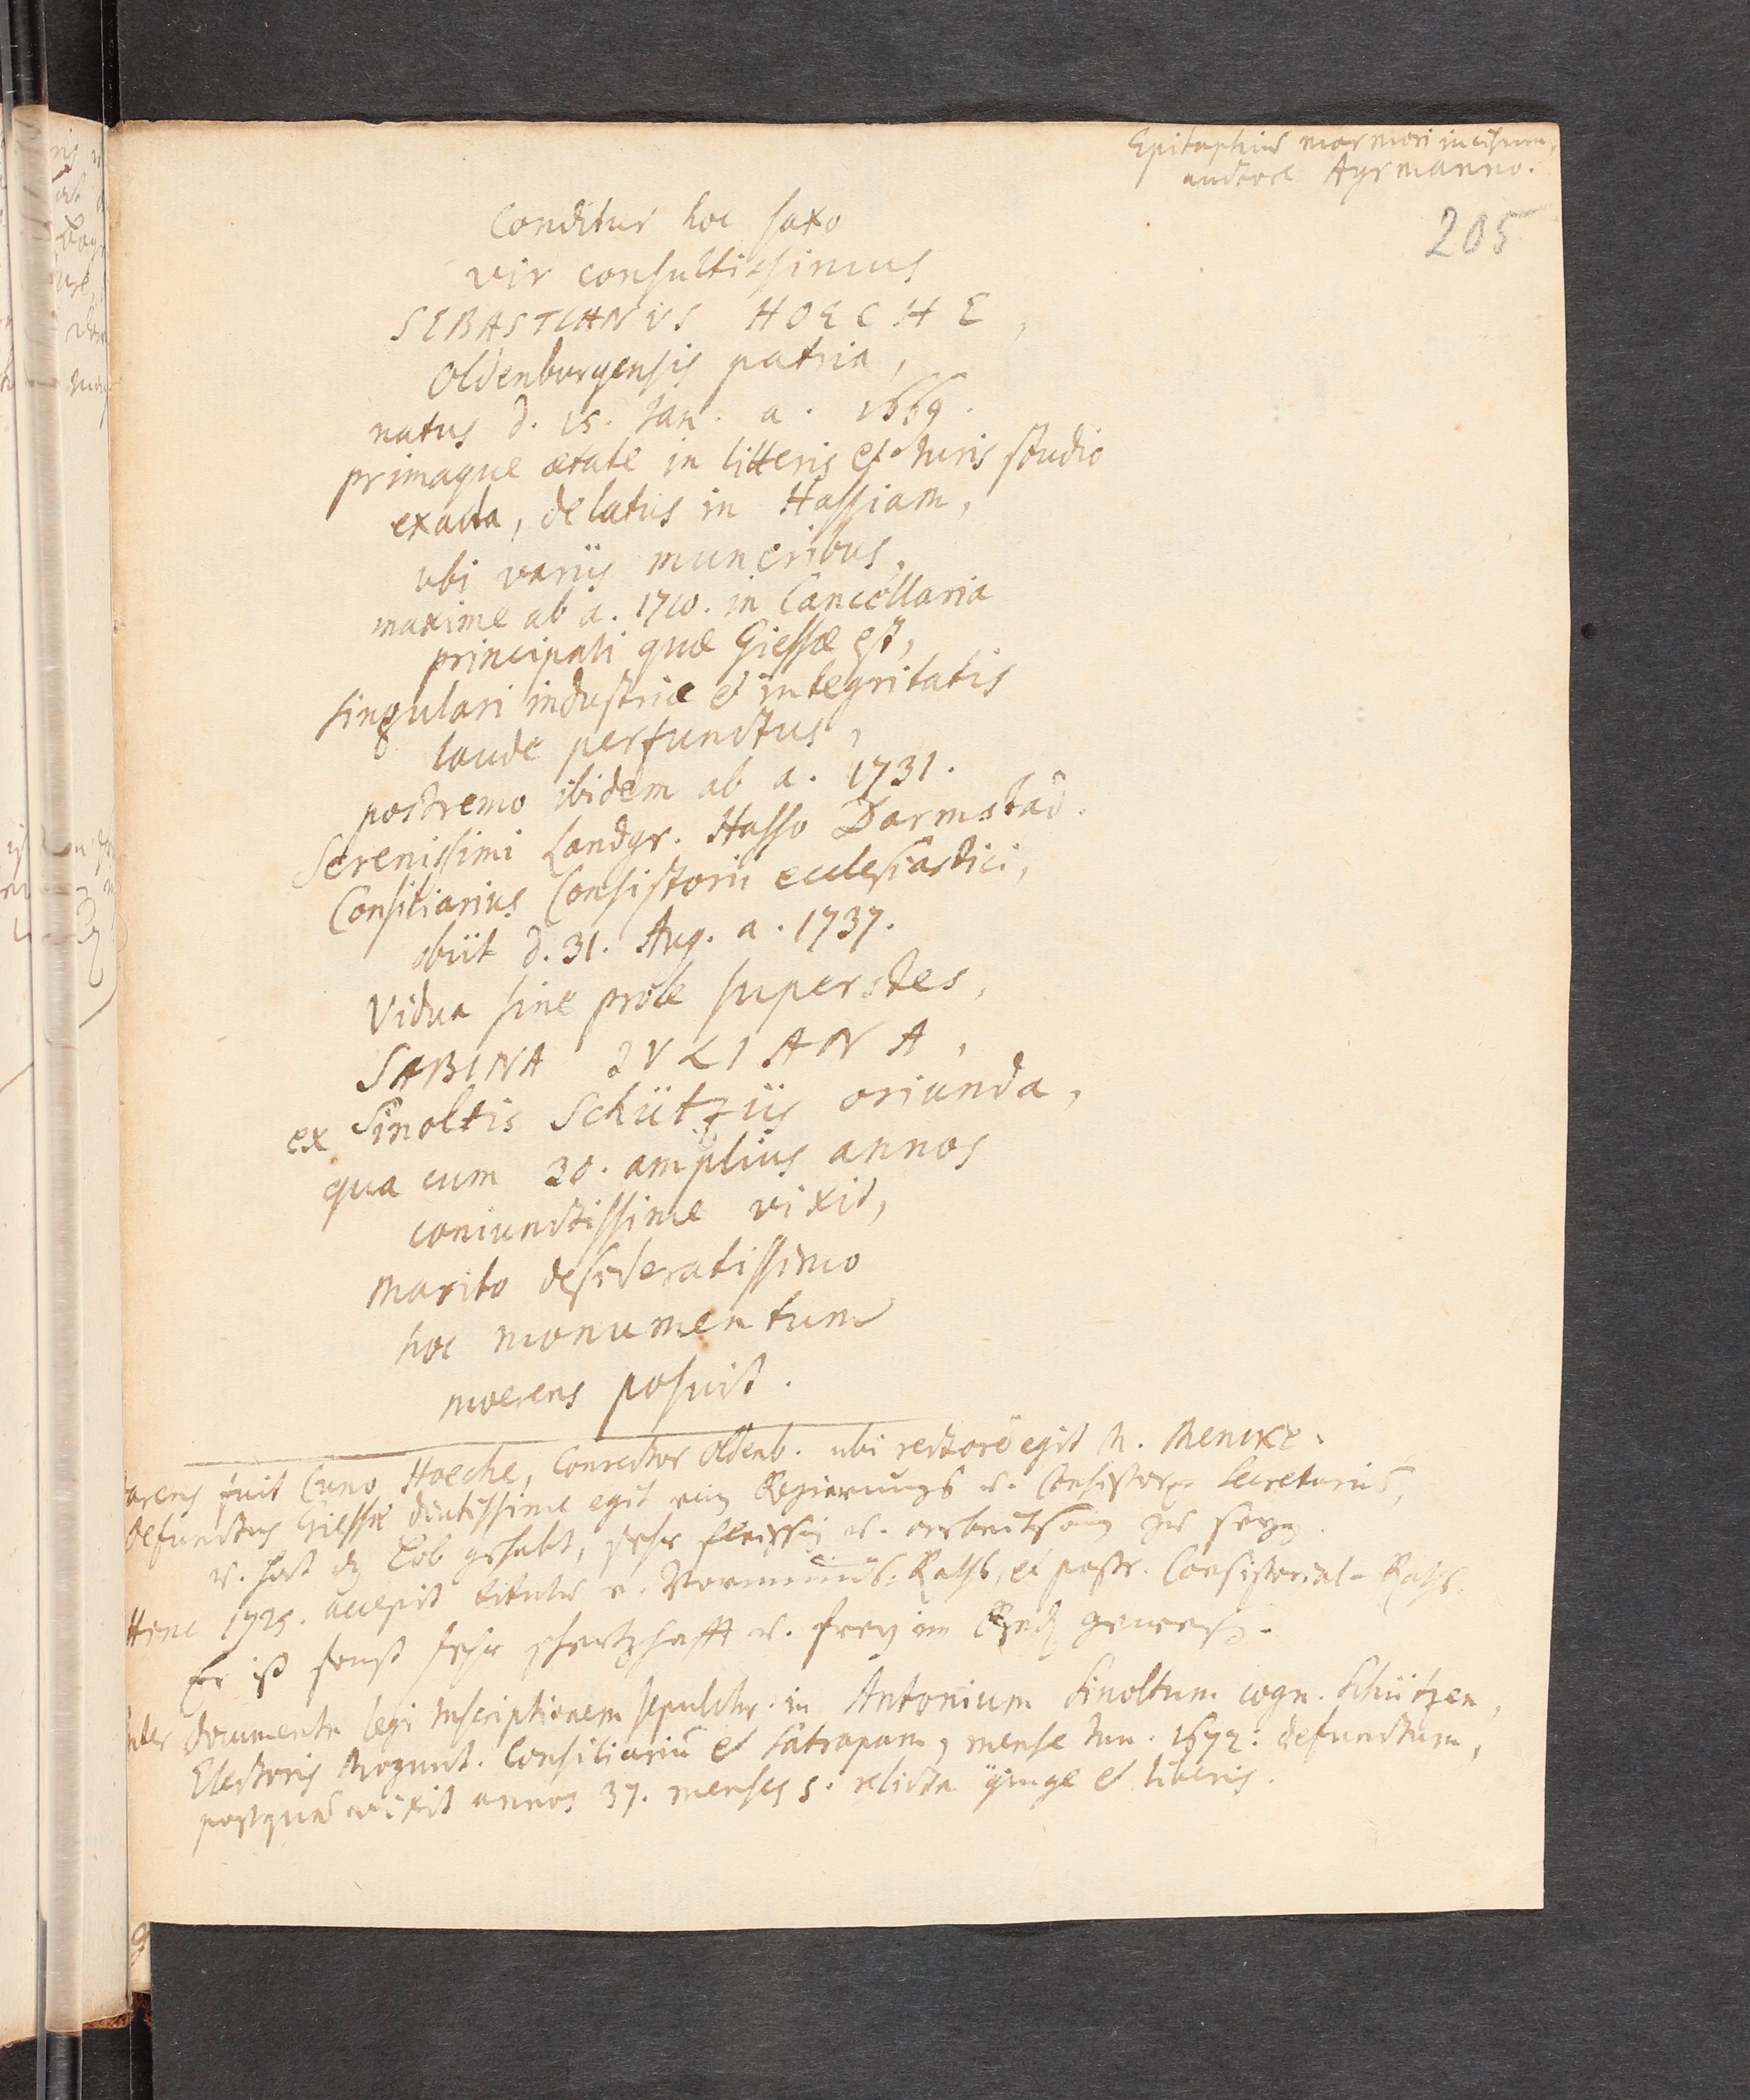 Epitaphium marmori incisum,
auctore Ayrmanno.
205
Conditur hoc saxo
vir consultissimus
SEBASTIANVS HOECHE,
Oldenburgensis patria,
natus d. 15. Jan. a. 1669.
primaque ætate in litteris et Iuris studio
exacta, delatus in Hassiam,
ubi variis muneribus,
maxime ab a. 1710. in Cancellaria
principali quæ Giessæ est,
singulari industriæ et integritatis
laude perfunctus,
postremo ibidem ab a. 1731.
Serenissimi Landgr. Hasso Darmstad.
Consiliarius Consistorii ecclesiastici,
obiit d. 31. Aug. a. 1737.
Vidua sine prole superstes,
SABINA IVLIANA,
ex Sinoltis Schütziis oriunda,
qua cum 20. amplius annos
coniunctissime vixit,
marito desideratissimo
hoc monumentum
moerens posuit.
parens fuit Cuno Hoeche, Conrector Oldenb. ubi rectorē egit M. Mencke.
defunctus Giessæ diutissime egit ein Regierungs u. Consistor. Secretarius,
u. hat dz Lob gehabt, sehr fleissig u. arbeitsam zu seyn.
Hinc 1725. accepit titulū e. Vormunds-Raths, et postr. Consistorial-Raths.
Er ist sonst sehr schertzhafft u. frey im Reden gewesen.
Inter documenta legi Inscriptionem sepulchr. in Antonium Sinoltum cogn. Schützen,
Electoris Mogunt. Consiliariū et Satrapam, mense Iun. 1672. defunctum,
postquam vixit annos 37. menses 5. relicta et liberis.